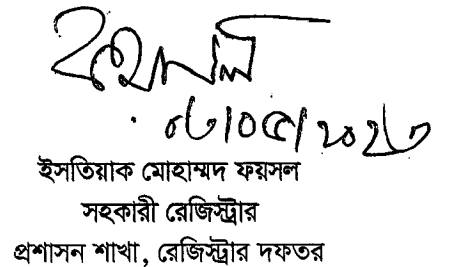 ০৩/০৫/২০২৩
ইসতিয়াক মোহাম্মদ ফয়সল
সহকারী রেজিস্ট্রার
প্রশাসন শাখা, রেজিস্ট্রার দফতর